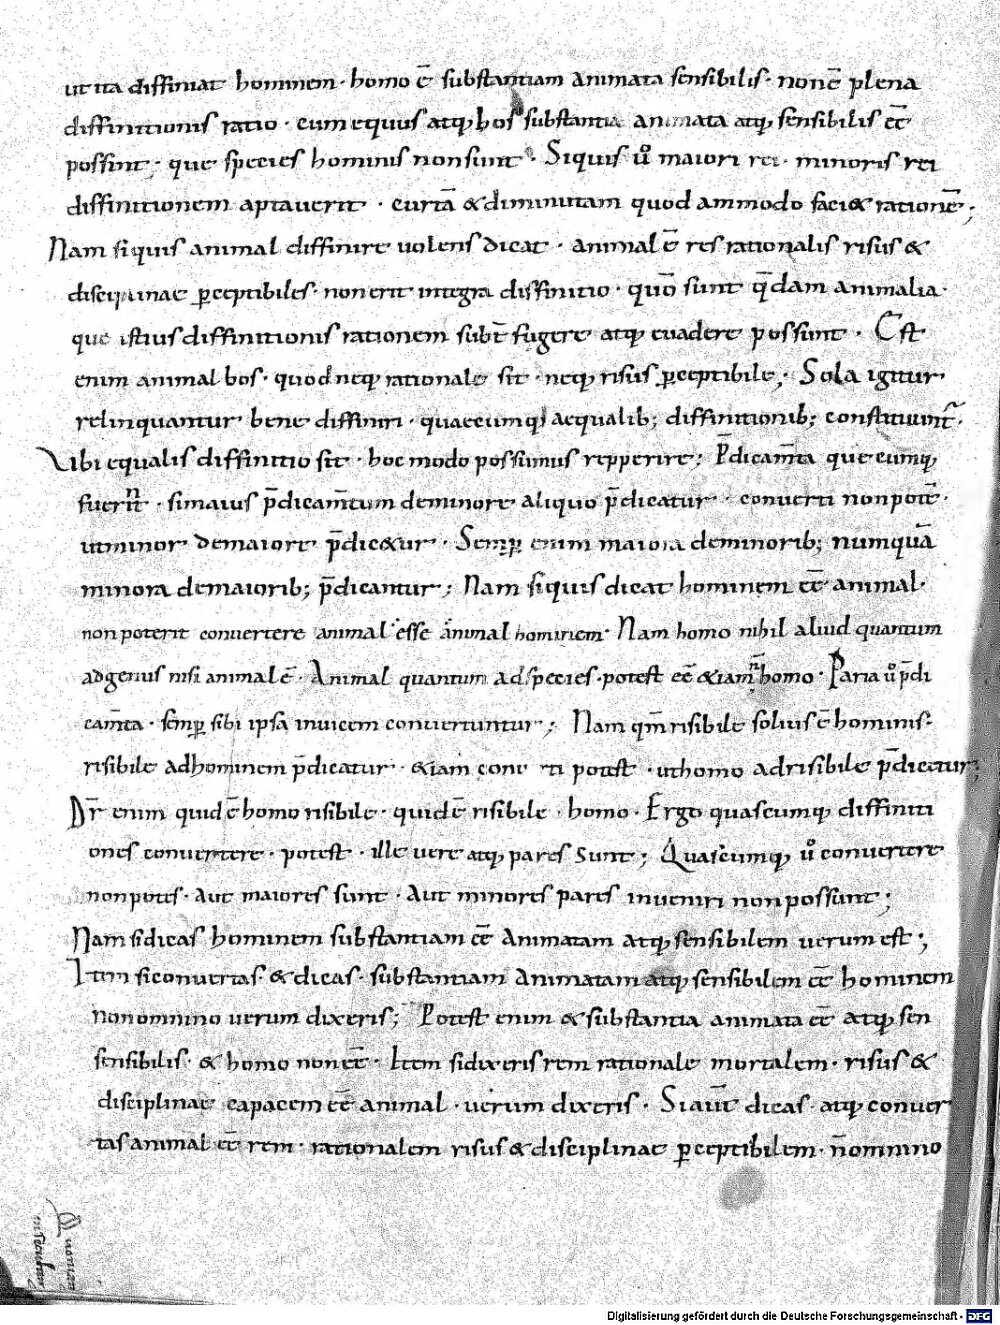 ut ita diffiniat hominem · homo ē substantiam animata sensibilis · non ē plena
diffinitionis ratio · cum equus atq; bos substantia animata atq; sensibilis eē
possint; que species hominis non sunt · Siquis ů maiori rei · minoris rei
diffinitionem aptaverit · curtā & diminutam quodammodo faci& rationē;
Nam siquis animal diffinire uolens dicat · animal ē res rationalis risus &
disciplinae p̲ceptibiles · non erit integra diffinitio · quō sunt q̄dam animalia ·
que istius diffinitionis rationem subt̄ fugere atq; euadere possunt · Est
enim animal bos · quod neq; rationale sit · neq; risus p̲ceptibile; Sola igitur
relinquantur bene diffiniri · quaecumq; aequalib; diffinitionib; constituunt̄ ·
Ubi equalis diffinitio sit · hoc modo possumus repperire; P̄dicam̄ta que cumq;
fuerīt · si maius p̄dicam̄tum de minore aliquo p̄dicatur · conuerti non potē ·
ut minor de maiore p̄dic&ur · Semp̲ enim maiora de minorib; numquā
minora de maiorib; p̄dicantur; Nam siquis dicat hominem eē animal ·
non poterit conuertere animal esse animal hominem · Nam homo nihil aliud quantum
ad genus nisi animal ē · Animal quantum ad species · potest eē & iam n̄ homo · Paria ů p̄di
cam̄ta · semp̲ sibi ipsa inuicem conuertuntur; Nam qm̄ risibile solius ē hominis ·
risibile ad hominem p̄dicatur · &iam conu rti potest · ut homo ad risibile p̄dicatur;
Dr̄ enim quid ē homo risibile · quid ē risibile · homo · Ergo quascumq; diffiniti
ones conuertere · potest · ille uere atq; pares sunt; Quascumq; ů conuertere
non potes · aut maiores sunt · aut minores pares inueniri non possunt;
Nam si dicas hominem substantiam eē animatam atq; sensibilem uerum est;
Item si conuertas · & dicas · substantiam animatam atq; sensibilem eē hominem
non omnino uerum dixeris; Potest enim & substantia animata eē atq; sen
sensibilis · & homo non eē · Item si dixeris rem rationale mortalem · risus &
disciplinae capacem eē animal · uerum dixeris · Si aūt dicas · atq; conuer
tas animal eē rem · rationalem risus & disciplinae p̲ceptibilem · n̄ omnino
Digitalisierung gefördert durch die Deutsche Forschungsgemeinschaft - DFG